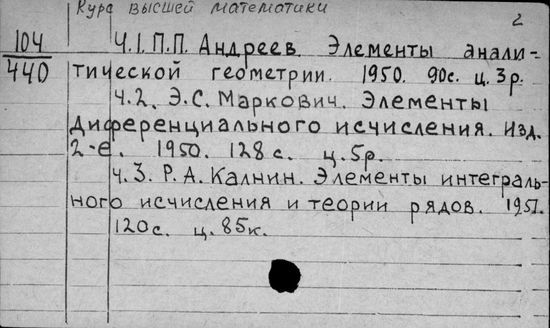 Курс высшей математики
2
104
440
Ч.1. П.П. Андреев. Элементы анали-
тической геометрии. 1950. 90с. ц. 3р.
Ч.2. Э.С. Маркович. Элементы
диференциального исчисления. Изд.
2-е. 1950. 128 с. ц. 5р.
Ч. 3. Р. А. Калнин. Элементы интеграль-
ного исчисления и теории рядов. 1951.
120с. ц. 85к.